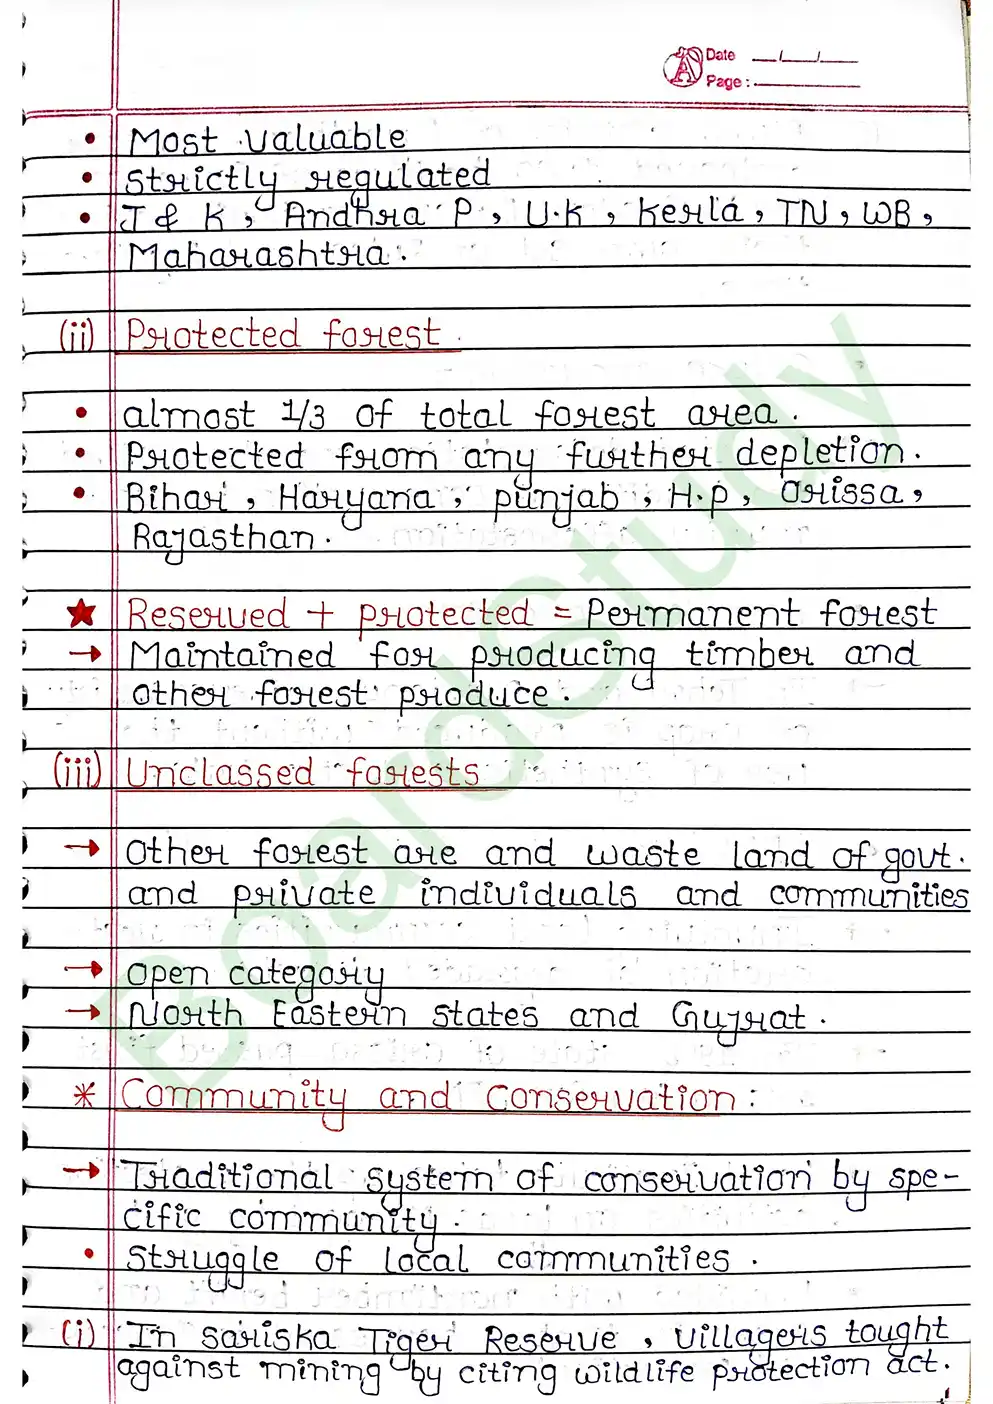 Date __/__/__
Page: ______
• Most valuable
• Strictly regulated
• J & K, Andhra P, U.K, Kerla, TN, WB,
Maharashtra.
(ii) Protected forest.
• almost 1/3 of total forest area.
• Protected from any further depletion.
• Bihar, Haryana, punjab, H.p, Orissa,
Rajasthan.
★ Reserved + protected = Permanent forest
→ Maintained for producing timber and
other forest produce.
(iii) Unclassed forests
→ Other forest are and waste land of govt.
and private individuals and communities
→ open category
→ North Eastern states and Gujrat.
* Community and Conservation:
→ Traditional system of conservation by spe-
cific community.
• Struggle of local communities.
(i) In Sariska Tiger Reserve, villagers tought
against mining by citing wildlife protection act.
BoardStudy